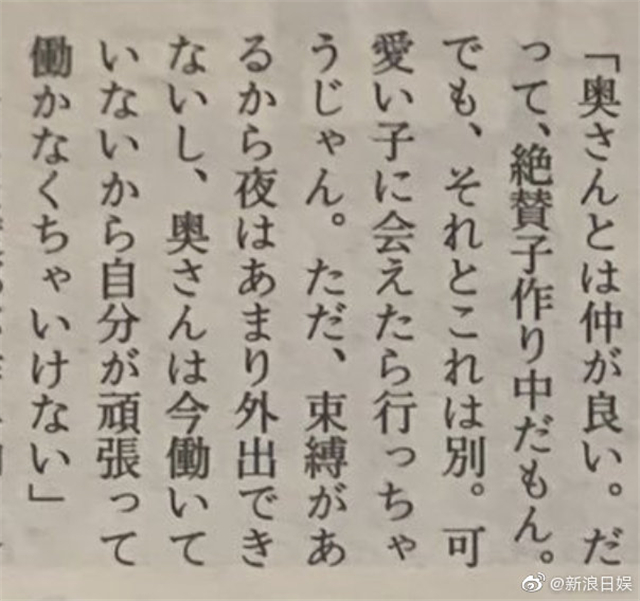 「奥さんとは仲が良い。だ
って、絶賛子作り中だもん。
でも、それとこれは別。可
愛い子に会えたら行っちゃ
うじゃん。ただ、束縛があ
るから夜はあまり外出でき
ないし、奥さんは今働いて
いないから自分が頑張って
働かなくちゃいけない」
@新浪日娱